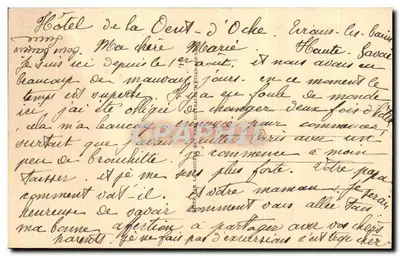 Hôtel de la Dent-d'Oche. Evians-les-Bains
Ma chère Marie Haute-Savoie
je suis ici depuis le 1er août. et nous avons eu
beaucoup de mauvais jours. en ce moment le
temps est superbe. Il y a eu foule de monde
ici, j'ai été obligée de changer deux fois d'hôtel
cela m'a beaucoup ennuyé pour commencer
surtout que j'avais quitté Paris avec un
peu de bronchite. je commence à moin
tousser. et je me sens plus forte. Votre papa
comment vat-il. et votre maman. Je serai
heureuse de savoir comment vous allez tous
ma bonne affection à partager avec vos chers
parents. je ne fais pas d'excursions c'est trop cher.